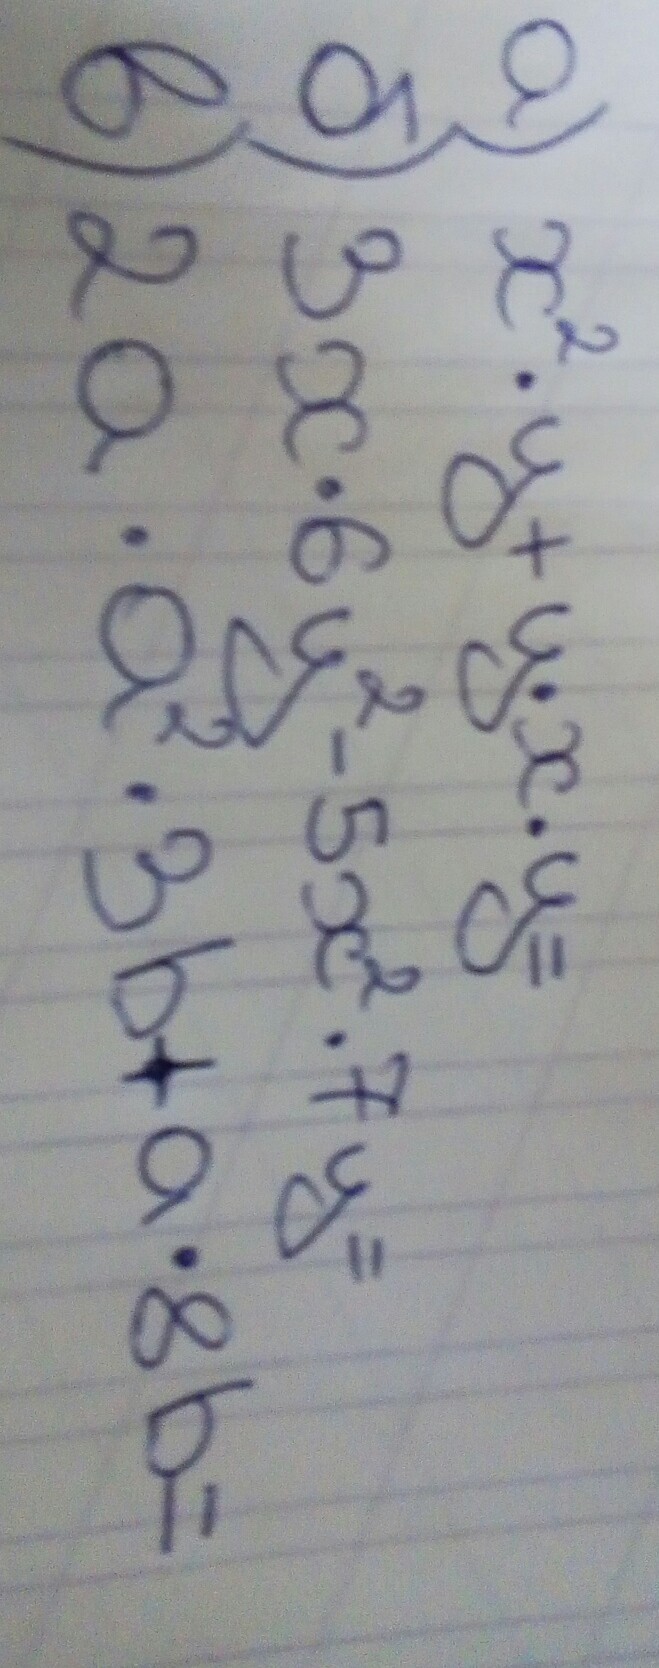 а) x²·y+y·x·y=
б) 3x·6y²-5x²·7y=
в) 2a·a²·3b+a·8b=